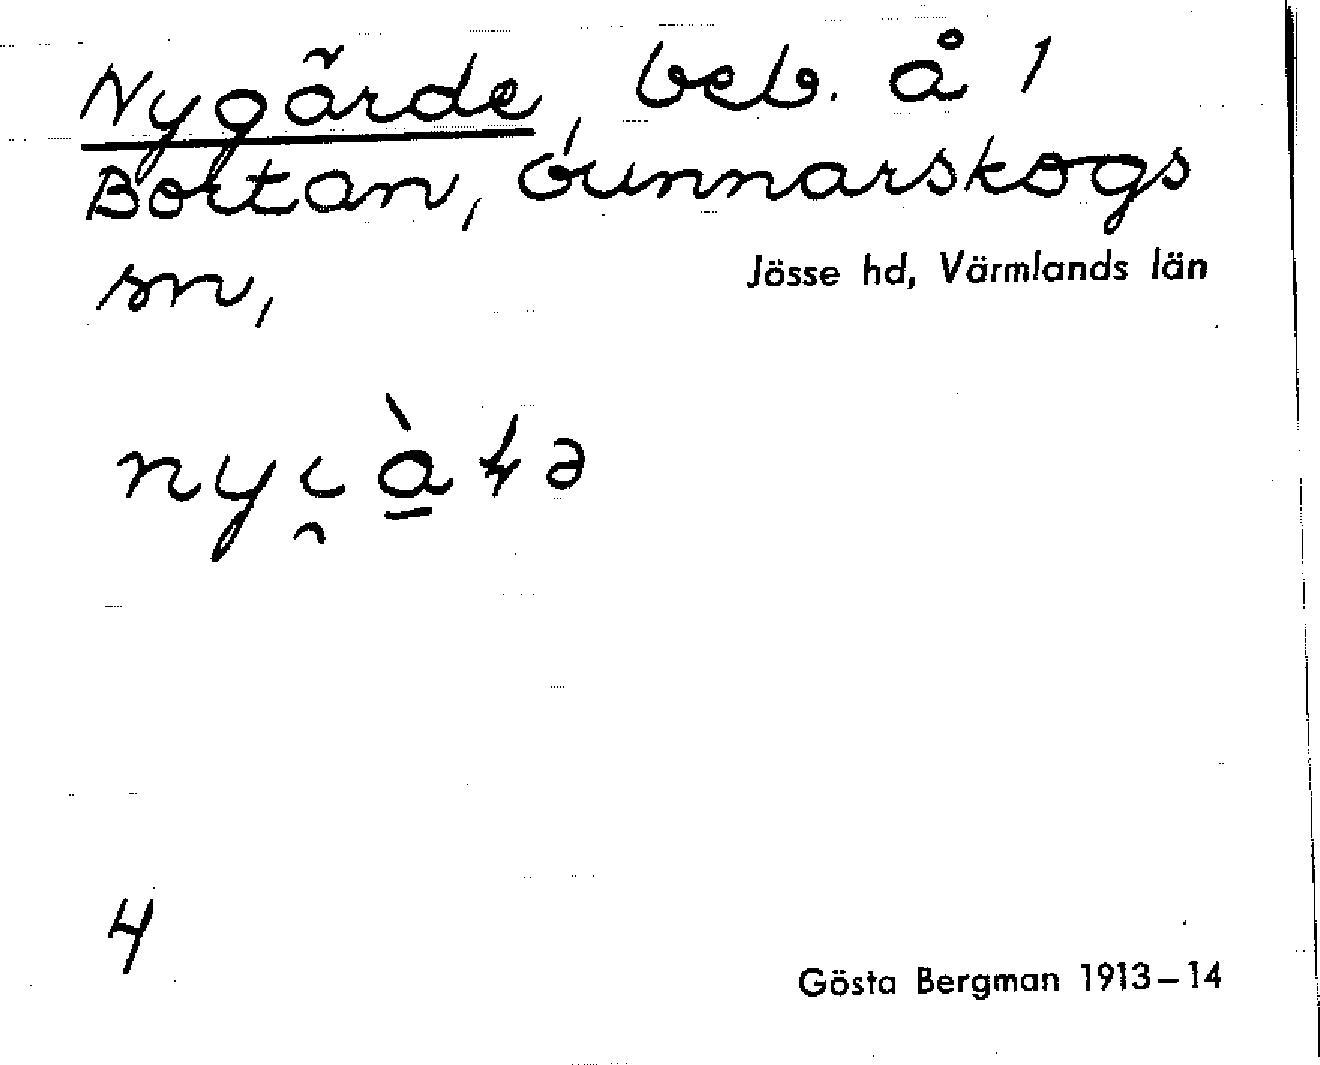 Nygärde, beb. å 1
Bortan, Gunnarskogs
sn,
Jösse hd, Värmlands län
4
Gösta Bergman 1913–14